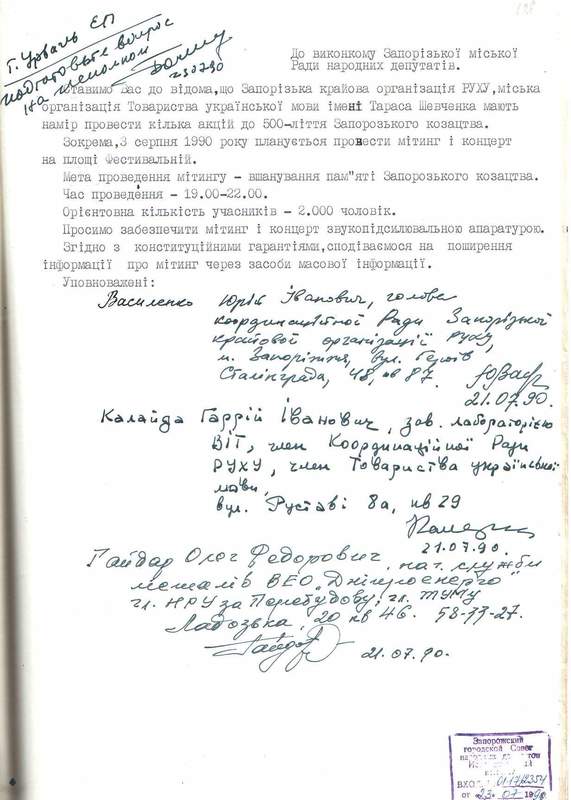 138
Т. Урвачь ЕП
подготовьте вопрос
на исполком
230790
До виконкому Запорізької міської
Ради народних депутатів.
Ставимо Вас до відома,що Запорізька крайова організація РУХУ,міська
організація Товариства української мови імені Тараса Шевченка мають
намір провести кілька акцій до 500-ліття Запорозького козацтва.
Зокрема,3 серпня 1990 року планується провести мітинг і концерт
на площі Фестивальній.
Мета проведення мітингу - вшанування пам"яті Запорозького козацтва.
Час проведення - 19.00-22.00.
Орієнтовна кількість учасників - 2.000 чоловік.
Просимо забезпечити мітинг і концерт звукопідсилювальною апаратурою.
Згідно з конституційними гарантіями,сподіваємося на поширення
інформації про мітинг через засоби масової інформації.
Уповноважені:
Василенко Юрій Іванович, голова
координаційної Ради Запорізької
крайової організації РУХУ,
м. Запоріжжя, вул. Героїв
Сталінграда, 48, кв 87.
21.07.90.
Калайда Гаррій Іванович, зав. лабораторією
ВІТ, член Координаційної Ради
РУХУ, член Товариства української
мови,
вул. Руставі 8а, кв 29
21.07.90.
Гайдар Олег Федорович, нач. служби
металів ВЕО „Дніпроенерго"
чл. НРУ за Перебудову, чл. ТУМу
Ладозька, 20 кв 46. 58-33-27.
21.07.90.
Запорожский
городской Совет
народных депутатов
ВХОД. 01-17/2354
от 23. 07 1990